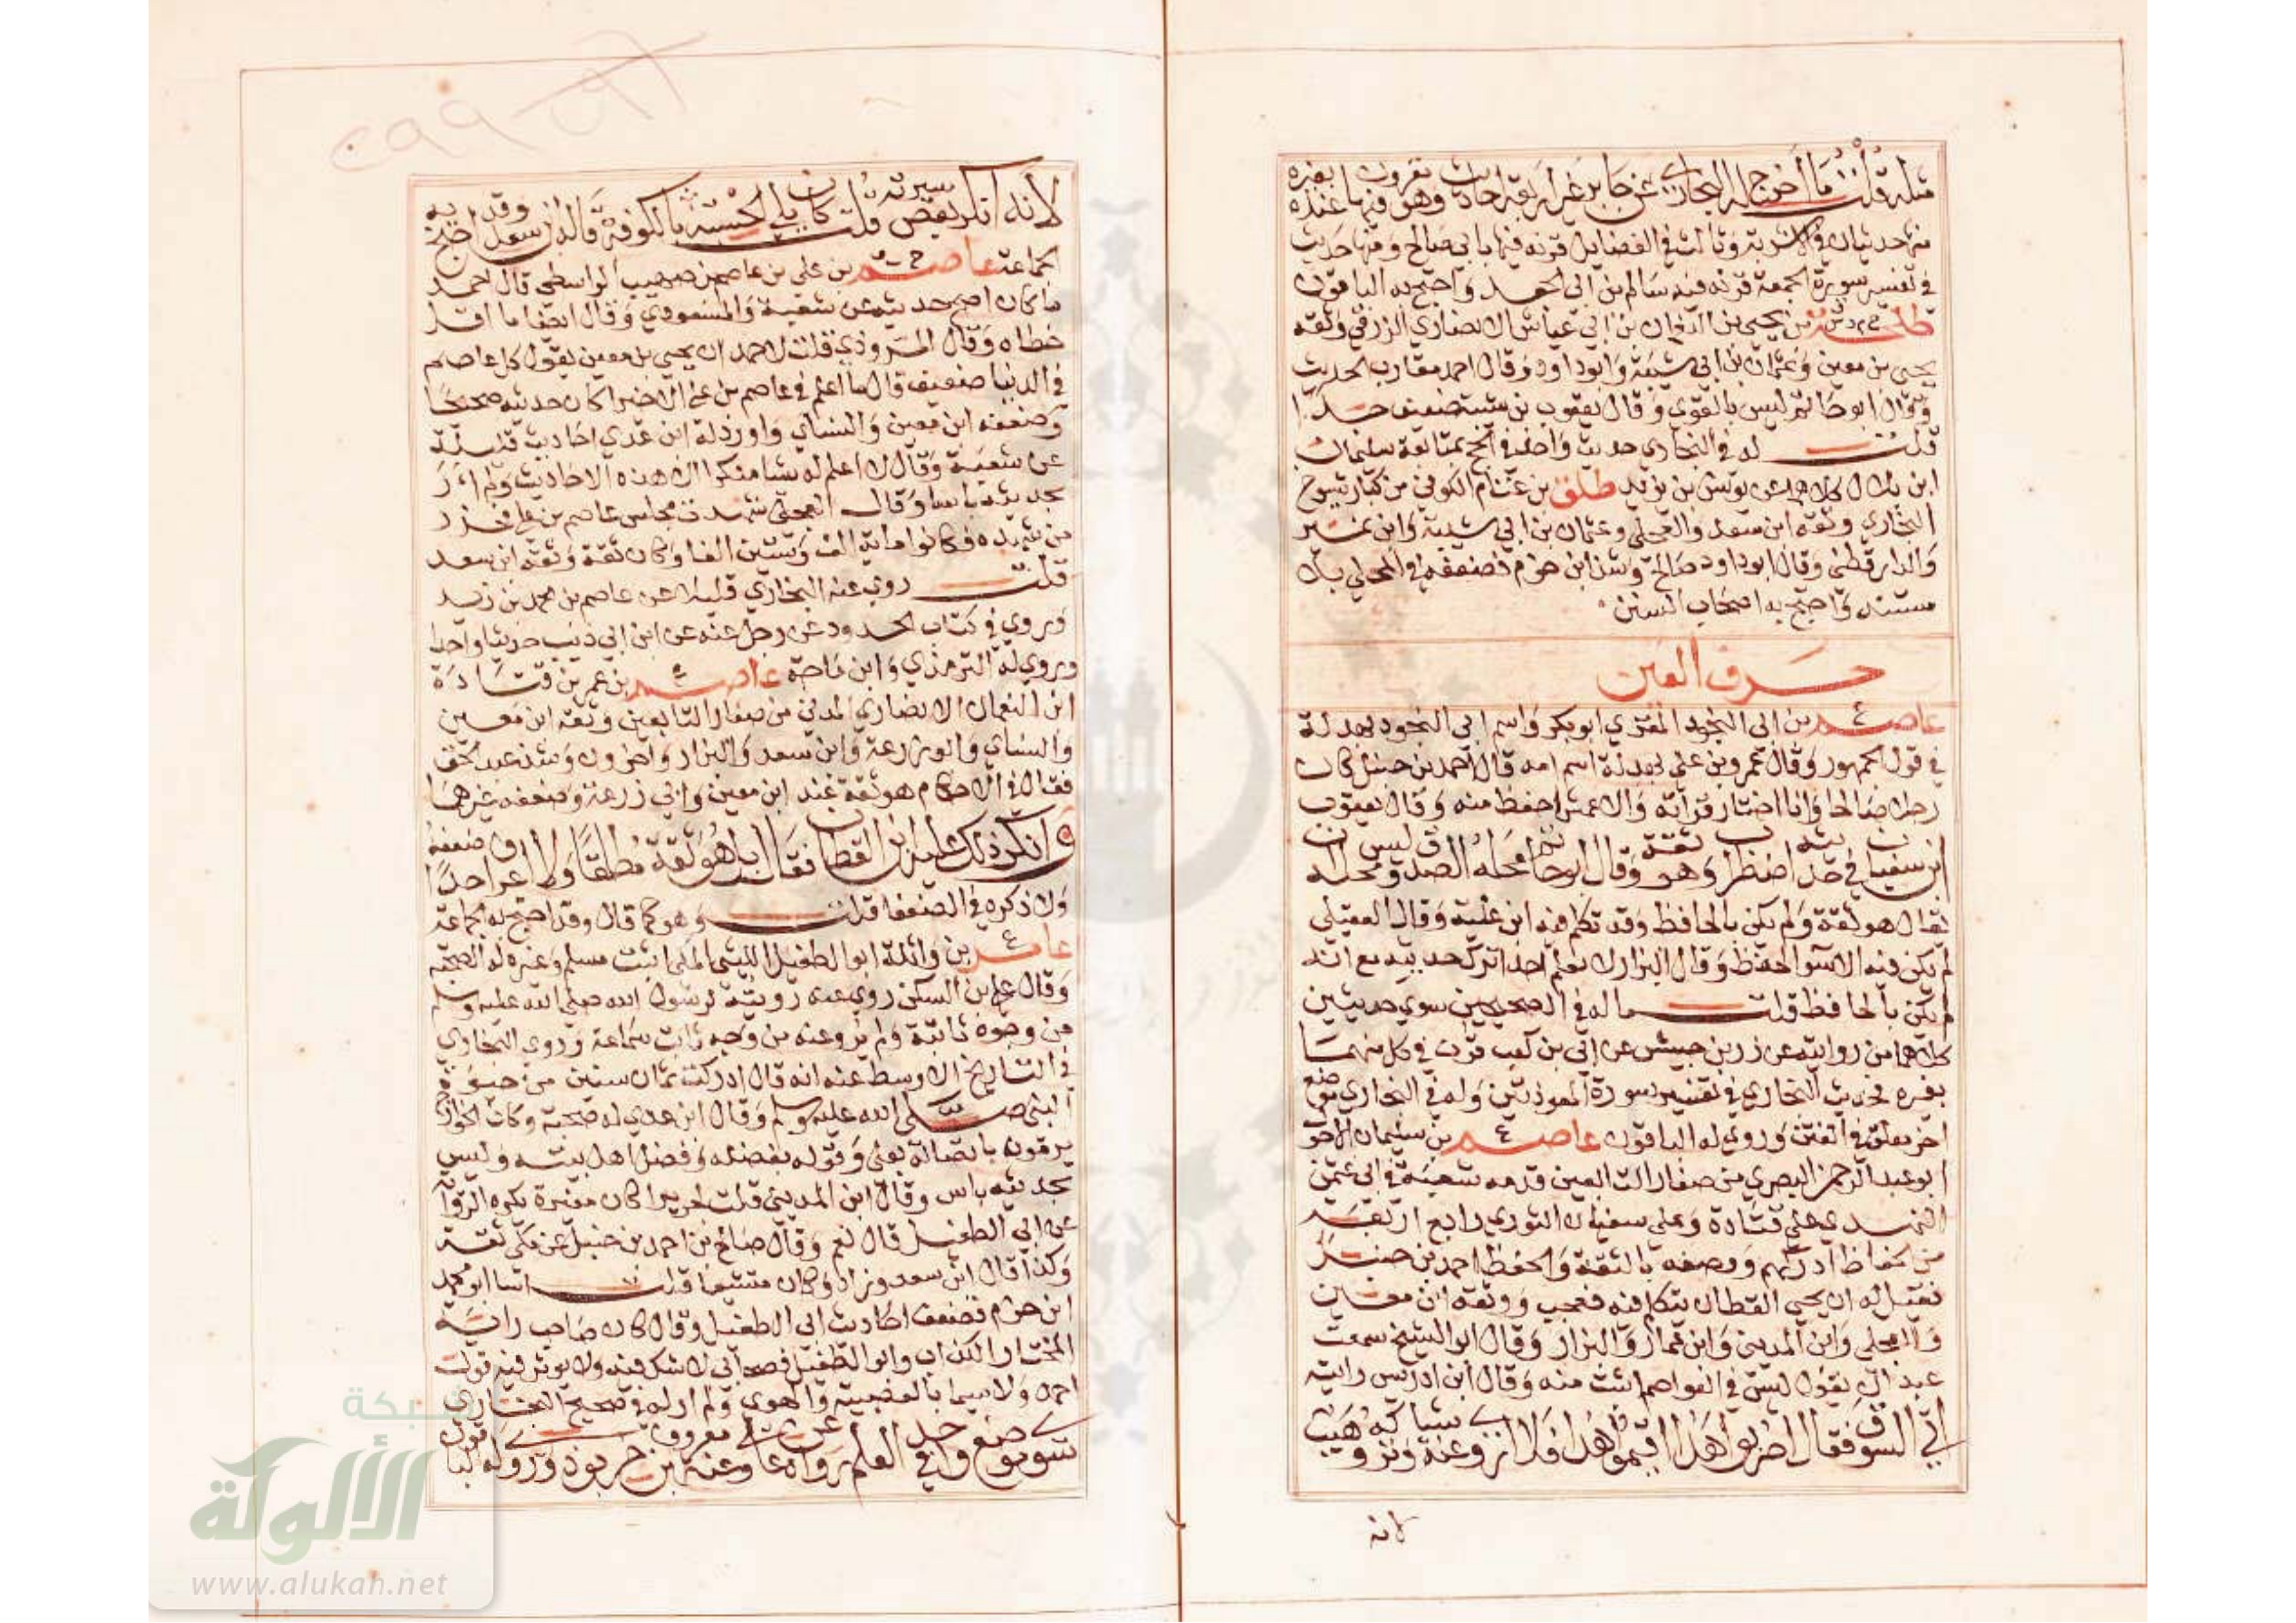 مثله قلت ما أخرج له البخاري عن جابر غير أربعة احاديث مقرون بغيره وهو فيها عنده
منها حديثان في الاشربة وثالث في الفضايل قرنه فيها بابي صالح ومنها حديث
في تفسير سورة الجمعة قرنه فيه سالم بن ابي الجعد واحتج به الباقون
طلحة بن يحيي بن النعمان بن ابي عياش الانصاري الزرقي وثقه
يحيي بن معين وعثمان بن ابي شيبة وابو داود وقال احمد مقارب الحديث
وقال ابو حاتم ليس بالقوي وقال يعقوب بن شيبة ضعيف جدا
قلت له في البخاري حديث واحد في الحج بمتابعة سليمان
ابن بلال كلاهما عن يونس بن يزيد طلق بن غنام الكوفي من كبار شيوخ
البخاري وثقه ابن سعد والعجلي وعثمان بن ابي شيبة وابن نمير
والدارقطني وقال ابو داود صالح وشذ ابن حزم فضعفه في المحلي بلا
مستند واحتج به اصحاب السنن
حرف العين
عاصم بن ابي النجود المقري ابو بكر واسم ابي النجود بهدلة
في قول الجمهور وقال عمرو بن علي بهدلة اسم امه قال احمد بن حنبل كان
رجلا صالحا وانا اختار قرأته والاعمش احفظ منه وقال يعقوب
ابن سفيان في حديثه اضطراب وهو ثقة وقال ابو حاتم محله الصدق وليس محله ان
يقال هو ثقة ولم يكن بالحافظ وقد تكلم فيه ابن علية وقال العقيلي
لم يكن فيه الا سوا الحفظ وقال البزار لا نعلم احدا ترك حديثه مع انه
لم يكن بالحافظ قلت ماله في الصحيحين سوي حديثين
كلاهما من روايته عن زر بن حبيش عن ابي بن كعب قرن في كل منهما
بغيره فحديث البخاري في تفسير سورة المعوذتين وله في البخاري موضع
اخر معلق في الفتن وروي له الباقون عاصم بن سليمان الاحول
ابو عبد الرحمن البصري من صغار التابعين قدمه شعبة في ابي عثمن
النهدي علي قتادة وعلي سفيان الثوري رابع اربعة
من الحفاظ ادركهم ووصفه بالثقة والحفظ احمد بن حنبل
فقيل له ان يحيي القطان يتكلم فيه فعجب ووثقه ابن معين
والعجلي وابن المديني وابن عمار والبزار وقال ابو الشيخ سمعت
عبدان يقول ليس في العواصم اثبت منه وقال ابن ادريس رايته
اتي السوق فقال اضربوا هذا اقيموا هذا فلا اروي عنه شيا وتركه وهيب
لانه
لانه انكر بعض سيرته قلت كان يلي الحسبة بالكوفة قاله ابن سعد وقد احتج به
الجماعة عاصم بن علي بن عاصم بن صهيب الواسطي قال احمد
ما كان اصح حديثه عن شعبة والمسعودي وقال ايضا ما اقل
خطاه وقال المروذي قلت لاحمد ان يحيي بن معين يقول كل عاصم
في الدنيا ضعيف قال ما اعلم في عاصم بن علي الا خيرا كان حديثه صحيحا
وضعفه ابن معين والنساي واورد له ابن عدي احاديث قليلة
عن شعبة وقال لا اعلم له شيا منكرا الا هذه الاحاديث ولم ار
بحديثه باسا وقال العجلي شهدت مجلس عاصم بن علي فحزر
من شهده فكانوا ماية الف وستين الفا وكان ثقة وثقه ابن سعد
قلت روي عنه البخاري قليلا عن عاصم بن محمد بن زيد
وروي في كتاب الحدود عن رجل عنه عن ابن ابي ذيب حديثا واحدا
وروي له الترمذي وابن ماجة عاصم بن عمر بن قتادة
ابن النعمان الانصاري المدني من صغار التابعين وثقه ابن معين
والنساي وابو زرعة وابن سعد والبزار واخرون وشذ عبد الحق
فقال في الاحكام هو ثقة عند ابن معين وابي زرعة وضعفه غيرهما
وانكر ذلك عليه ابن القطان فقال بل هو ثقة مطلقا ولا اعرف احدا ضعفه
ولا ذكره في الضعفا قلت وهو كما قال وقد احتج به الجماعة
عامر بن واثلة ابو الطفيل الليثي المكي اثبت مسلم وغيره له الصحبة
وقال علي بن السكن روي عنه رويته لرسول الله صلي الله عليه وسلم
من وجوه ثابتة ولم يرو عنه من وجه ثابت سماعه وروي البخاري
في التاريخ الاوسط عنه انه قال ادركت ثمان سنين من حيوة
النبي صلي الله عليه وسلم وقال ابن عدي له صحبة وكان الخوارج
يرمونه باتصاله بعلي وقوله بفضله وفضل اهل بيته وليس
بحديثه باس وقال ابن المديني قلت لجرير اكان مغيرة يكره الرواية
عن ابي الطفيل قال نعم وقال صالح بن احمد بن حنبل عن مكي ثقة
وكذا قال ابن سعد وزاد وكان متشيعا قلت اسا ابو محمد
ابن حزم فضعف احاديث ابي الطفيل وقال كان صاحب راية
المختار الكذاب وابو الطفيل صحابي لا شك فيه ولا يوثر فيه قول
احد ولا سيما بالعصبية والهوي ولم ار له في صحيح البخاري
سوي موضع واحد في العلم رواه عن علي وعنه معروف بن خربوذ وروي له الباقون
شبكة
الألوكة
www.alukah.net